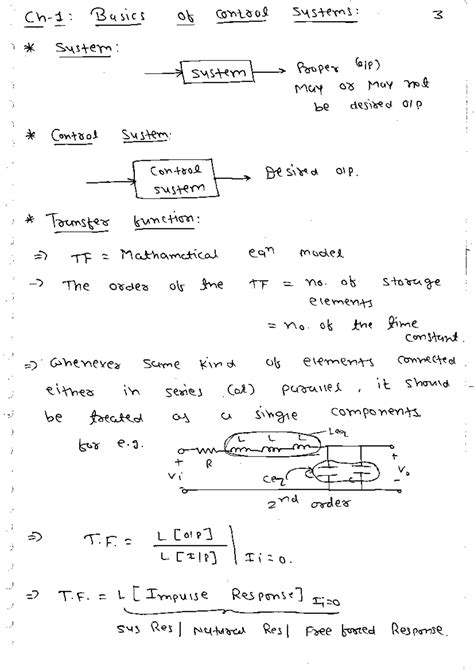 Ch-1: Basics of Control Systems: 3
* System:
System
Proper (o/p)
May or May not
be desired o/p
* Control System:
Control
system
Desired o/p.
* Transfer function:
=> TF = Mathamatical eqn model
-> The order of the TF = no. of storage
elements
= no. of the time
constant.
=> Whenever same kind of elements connected
either in series (or) parallel, it should
be treated as a single components
for e.g.
L L L Leq
R
+ +
Vi Ceq Vo
- -
2nd order
=> T.F. = L[o/p] / L[I/p] | Ii=0.
=> T.F. = L[Impulse Response] Ii=0
Sys Res/ Natural Res/ Free forced Response.